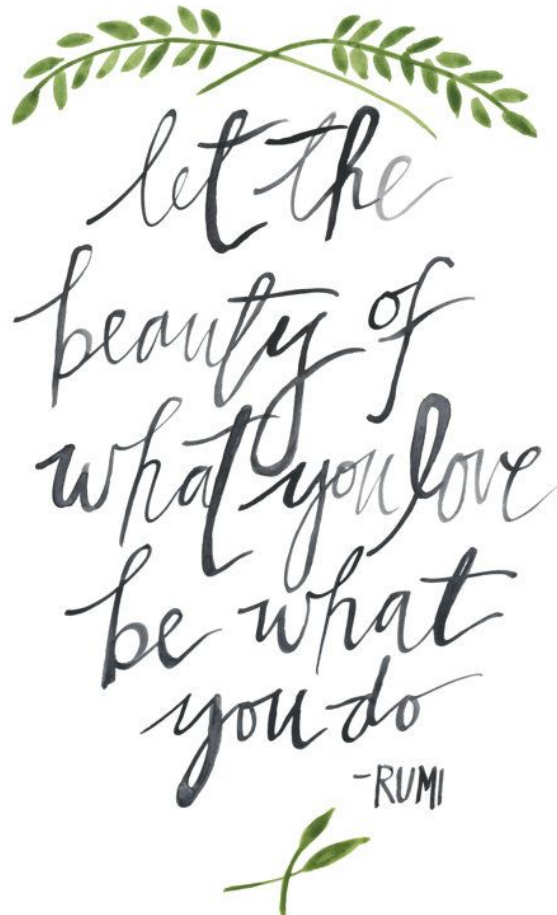 let the
beauty of
what you love
be what
you do
-RUMI